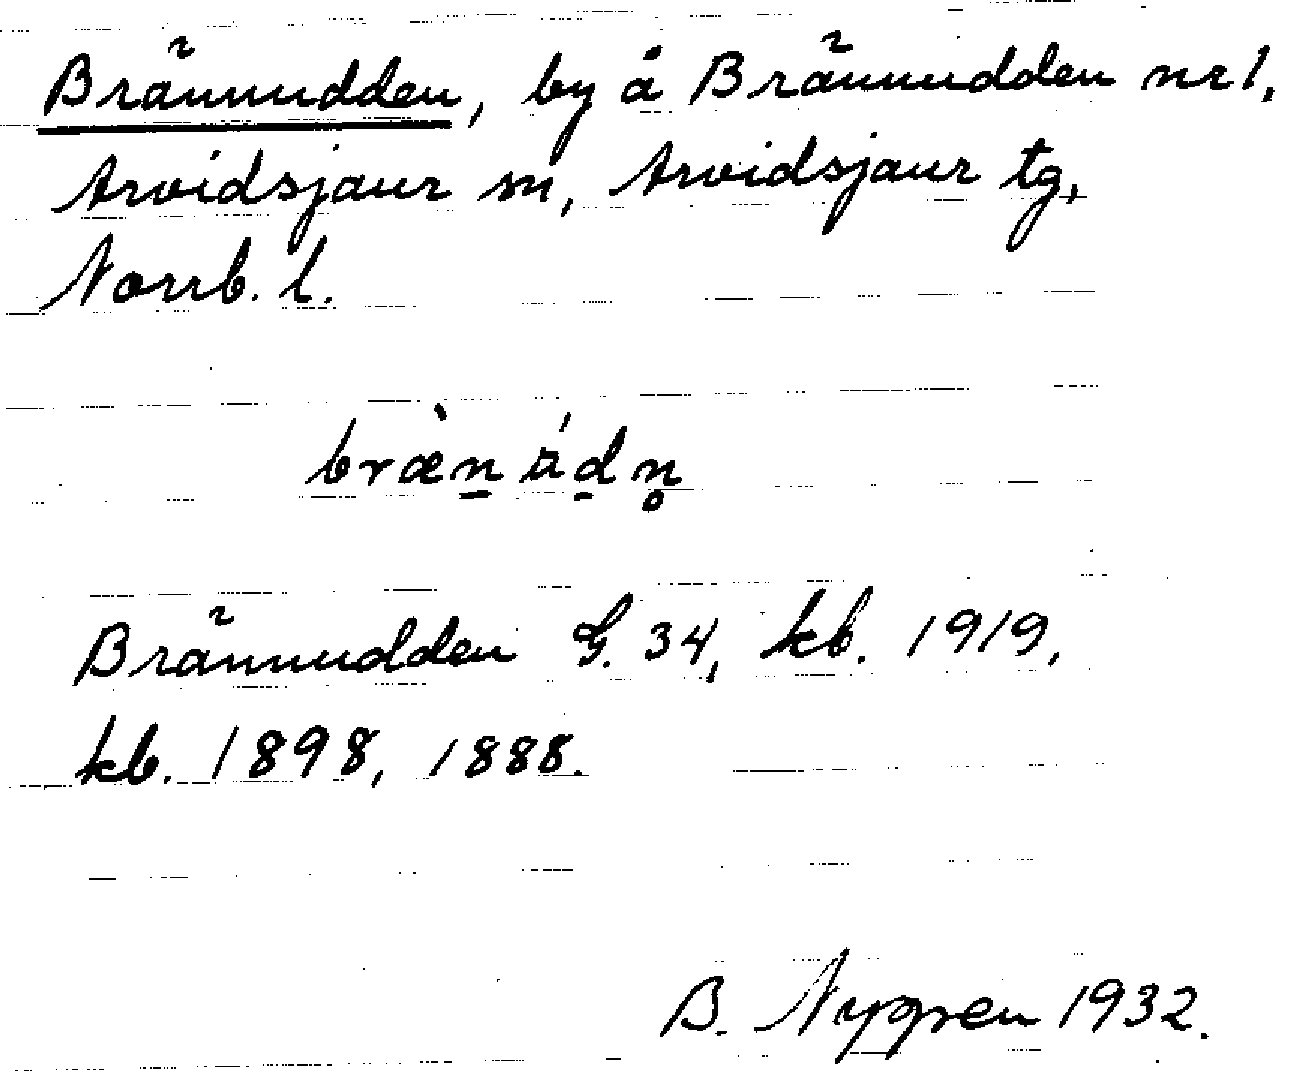 Brännudden, by å Brännudden nr 1,
Arvidsjaur sn, Arvidsjaur tg,
Norrb. l.
Brännudden G. 34, kb. 1919,
kb. 1898, 1888.
B. Nygren 1932.